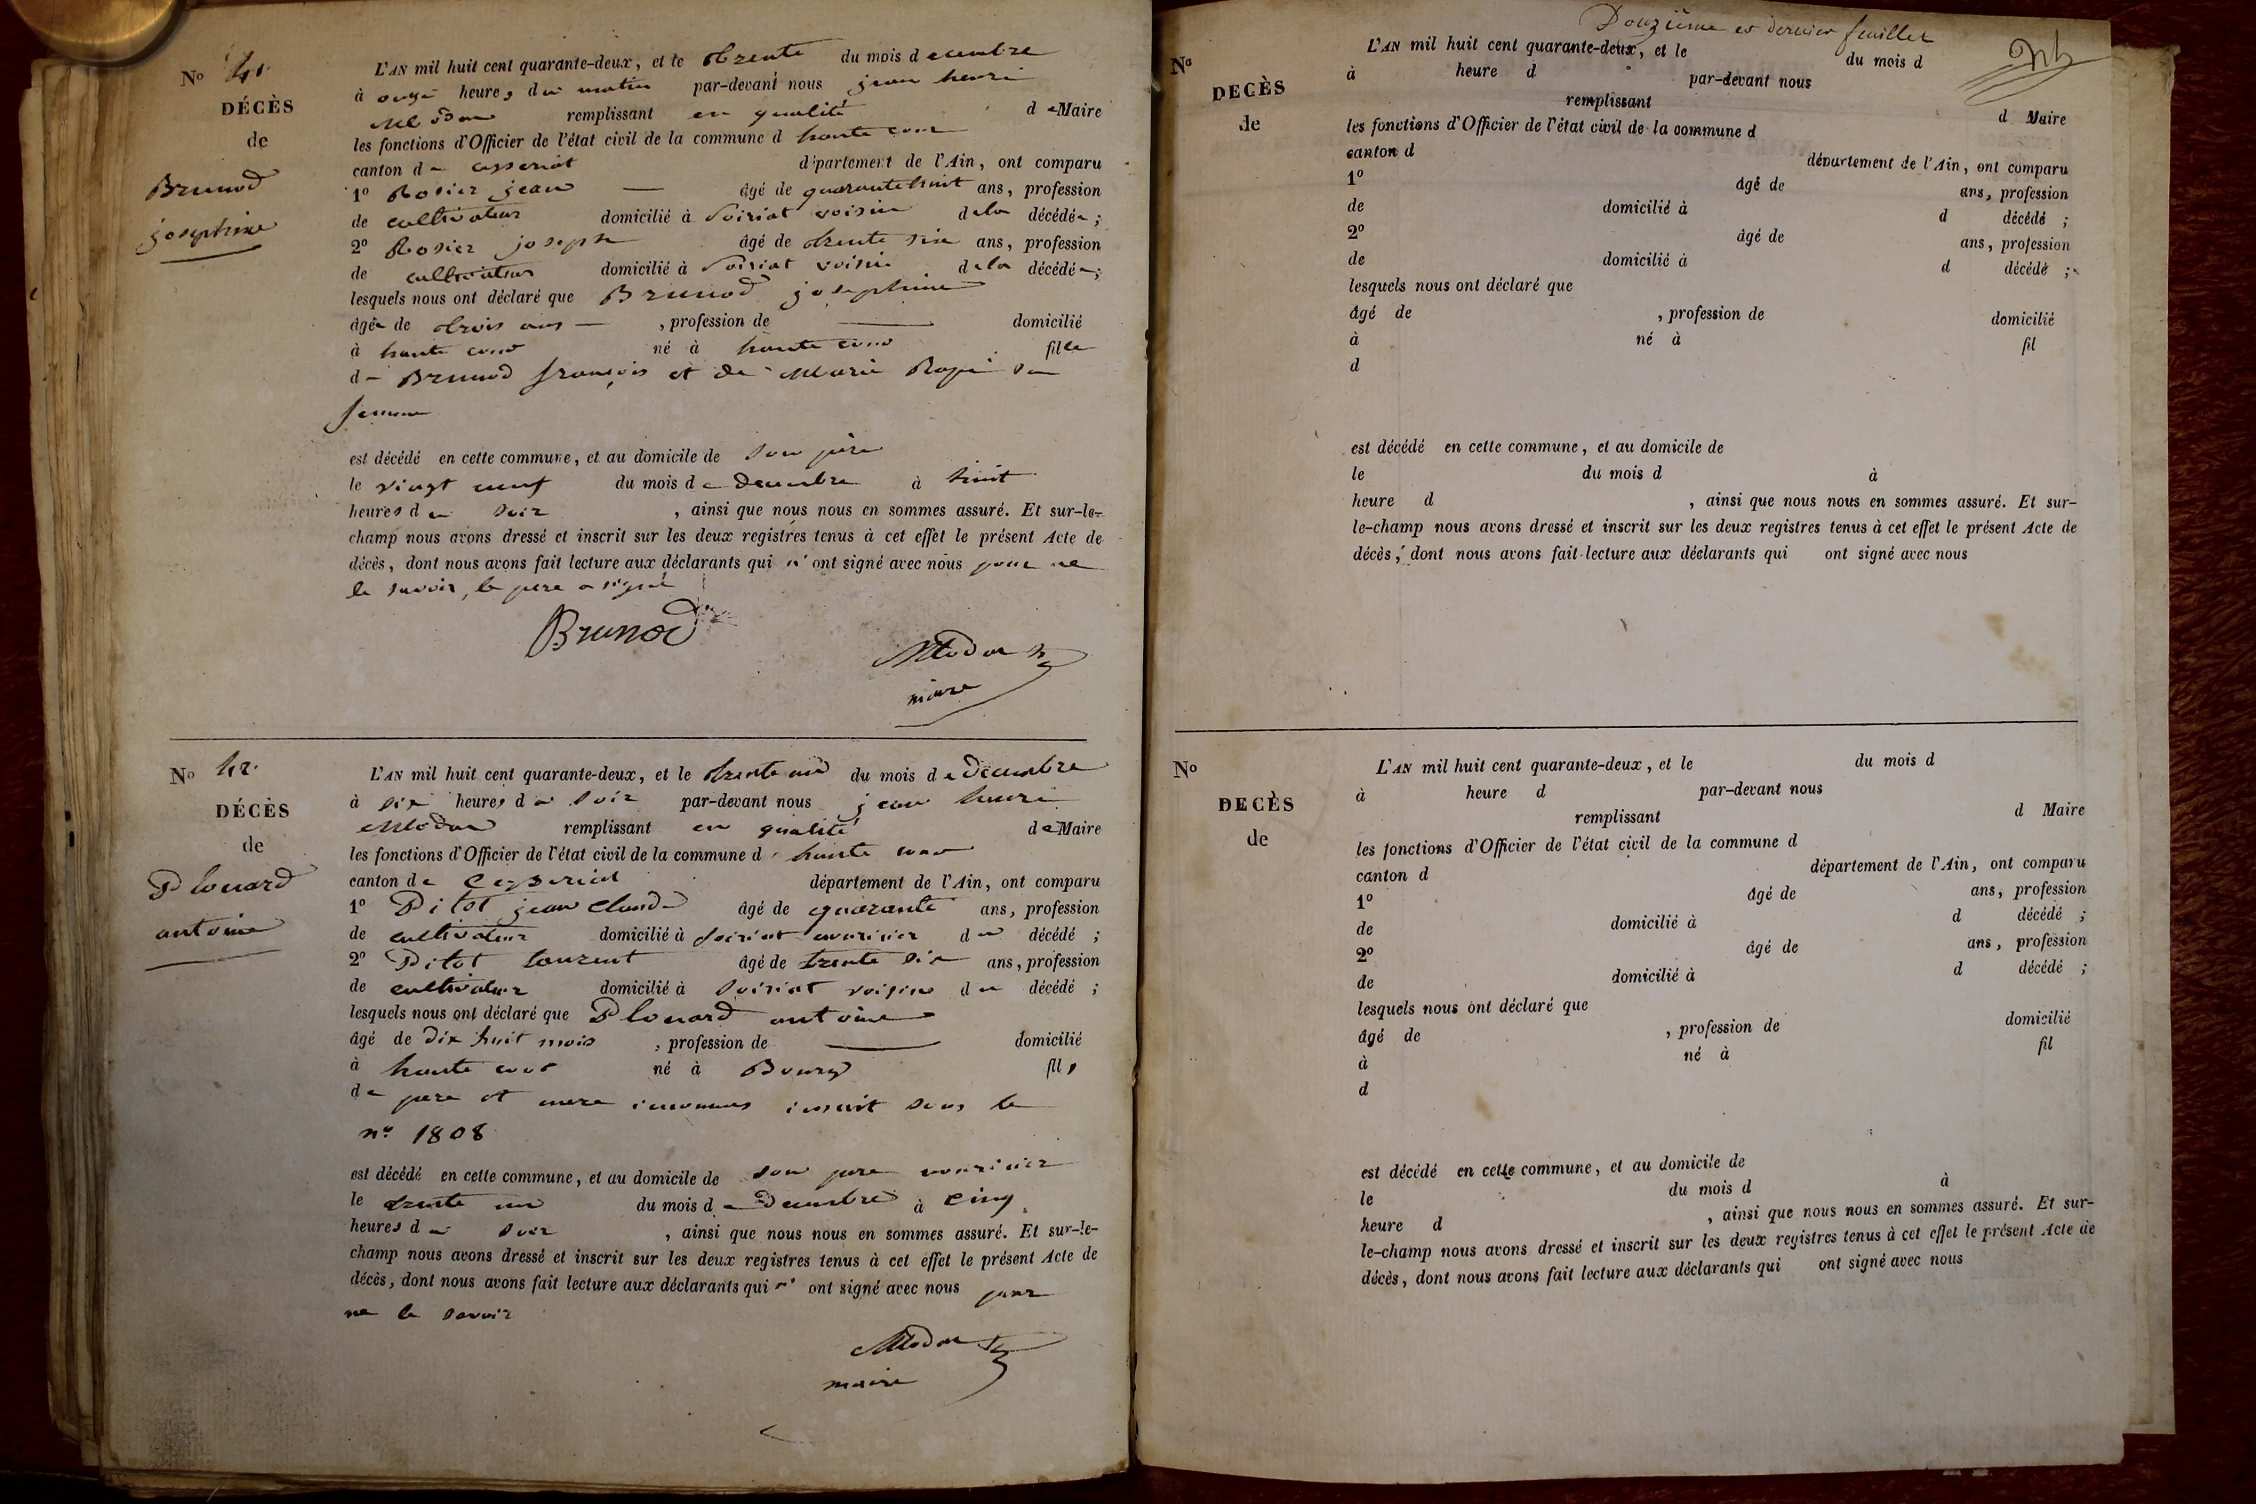 N° 41.
DÉCÈS
de
Brunod
josephine
L'AN mil huit cent quarante-deux, et le trente du mois decembre
à onze heures du matin par-devant nous jean henri
remplissant en qualité de Maire
les fonctions d'Officier de l'état civil de la commune d haute cour
canton de département de l'Ain, ont comparu
1° Rosier jean — âgé de quarante huit ans, profession
de cultivateur domicilié à Soiriat voisin de la décédée;
2° Rosier joseph âgé de trente six ans, profession
de cultivateur domicilié à Soiriat voisin de la décédée;
lesquels nous ont déclaré que Brunod josephine
âgée de trois ans — , profession de — domicilié
à haute cour né à haute cour fille
de Brunod françois et de Marie sa
femme
est décédé en cette commune, et au domicile de son père
le vingt neuf du mois de decembre à huit
heures du soir , ainsi que nous nous en sommes assuré. Et sur-le-
champ nous avons dressé et inscrit sur les deux registres tenus à cet effet le présent Acte de
décès, dont nous avons fait lecture aux déclarants qui n'ont signé avec nous pour ne
le savoir, le pere a signé
Brunod
maire
N° 42.
DÉCÈS
de
Plouard
antoine
L'AN mil huit cent quarante-deux, et le trente un du mois de decembre
à six heures du soir par-devant nous jean henri
remplissant en qualité de Maire
les fonctions d'Officier de l'état civil de la commune d haute cour
canton de Ceyseriat département de l'Ain, ont comparu
1° Pitot jean Claude âgé de quarante ans, profession
de cultivateur domicilié à Soiriat nouricier du décédé ;
2° Pitot laurent âgé de trente six ans, profession
de cultivateur domicilié à Soiriat voisin du décédé ;
lesquels nous ont déclaré que Plouard antoine
âgé de dix huit mois , profession de — domicilié
à haute cour né à Bourg fils
de pere et mere inconnus inscrit sous le
n° 1808
est décédé en cette commune, et au domicile de son pere nouricier
le trente un du mois de Decembre à cinq
heures du soir , ainsi que nous nous en sommes assuré. Et sur-le-
champ nous avons dressé et inscrit sur les deux registres tenus à cet effet le présent Acte de
décès, dont nous avons fait lecture aux déclarants qui n' ont signé avec nous pour
ne le savoir
maire
Douzième et dernier feuillet
N°
DECÈS
de
L'AN mil huit cent quarante-deux, et le du mois d
à heure d par-devant nous
remplissant d Maire
les fonctions d'Officier de l'état civil de la commune d
canton d département de l'Ain, ont comparu
1° âgé de ans, profession
de domicilié à d décédé ;
2° âgé de ans, profession
de domicilié à d décédé ;
lesquels nous ont déclaré que
âgé de , profession de domicilié
à né à fil
d
est décédé en cette commune, et au domicile de
le du mois d à
heure d , ainsi que nous nous en sommes assuré. Et sur-
le-champ nous avons dressé et inscrit sur les deux registres tenus à cet effet le présent Acte de
décès, dont nous avons fait lecture aux déclarants qui ont signé avec nous
N°
DECÈS
de
L'AN mil huit cent quarante-deux, et le du mois d
à heure d par-devant nous
remplissant d Maire
les fonctions d'Officier de l'état civil de la commune d
canton d département de l'Ain, ont comparu
1° âgé de ans, profession
de domicilié à d décédé ;
2° âgé de ans, profession
de domicilié à d décédé ;
lesquels nous ont déclaré que
âgé de , profession de domicilié
à né à fil
d
est décédé en cette commune, et au domicile de
le du mois d à
heure d , ainsi que nous nous en sommes assuré. Et sur-
le-champ nous avons dressé et inscrit sur les deux registres tenus à cet effet le présent Acte de
décès, dont nous avons fait lecture aux déclarants qui ont signé avec nous